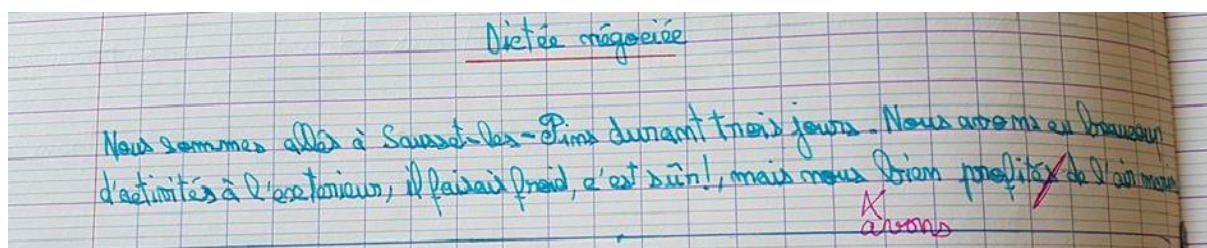 Dictée négociée
Nous sommes allés à Sausset-les-Pins durant trois jours. Nous avons eu beaucoup
d'activités à l'exterieur, il faisait froid, c'est sûr!, mais nous bien profité de l'air marin
avons